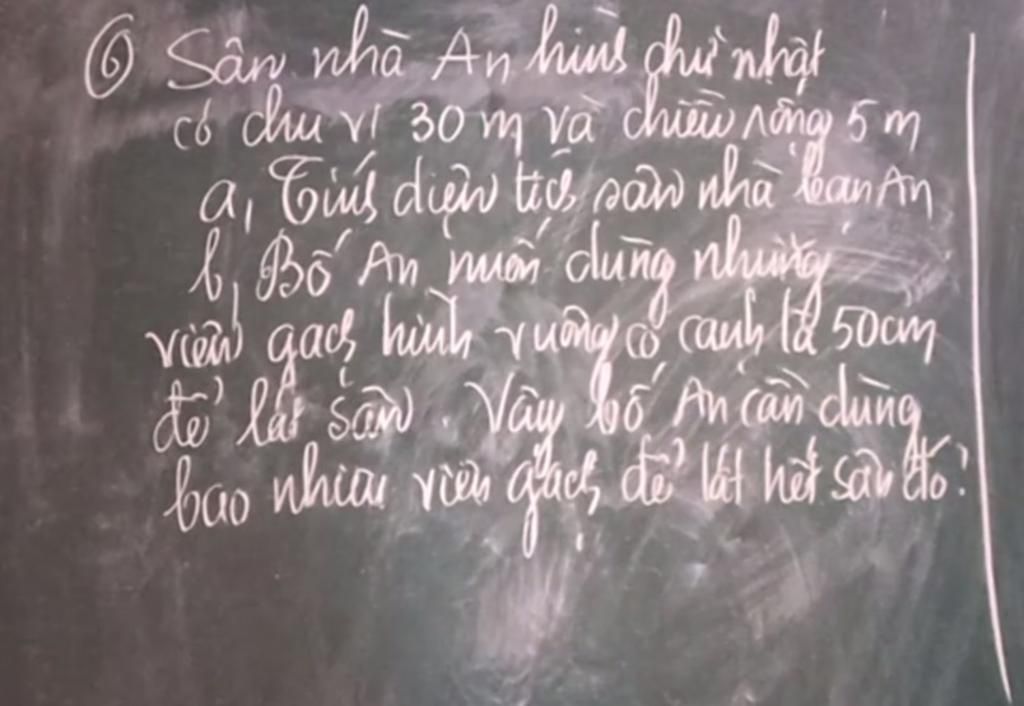 ⑥ Sân nhà An hình chữ nhật
có chu vi 30 m và chiều rộng 5 m
a, Tính diện tích sân nhà bạn An
b, Bố An muốn dùng những
viên gạch hình vuông có cạnh là 50cm
để lát sân. Vậy bố An cần dùng
bao nhiêu viên gạch để lát hết sân đó?